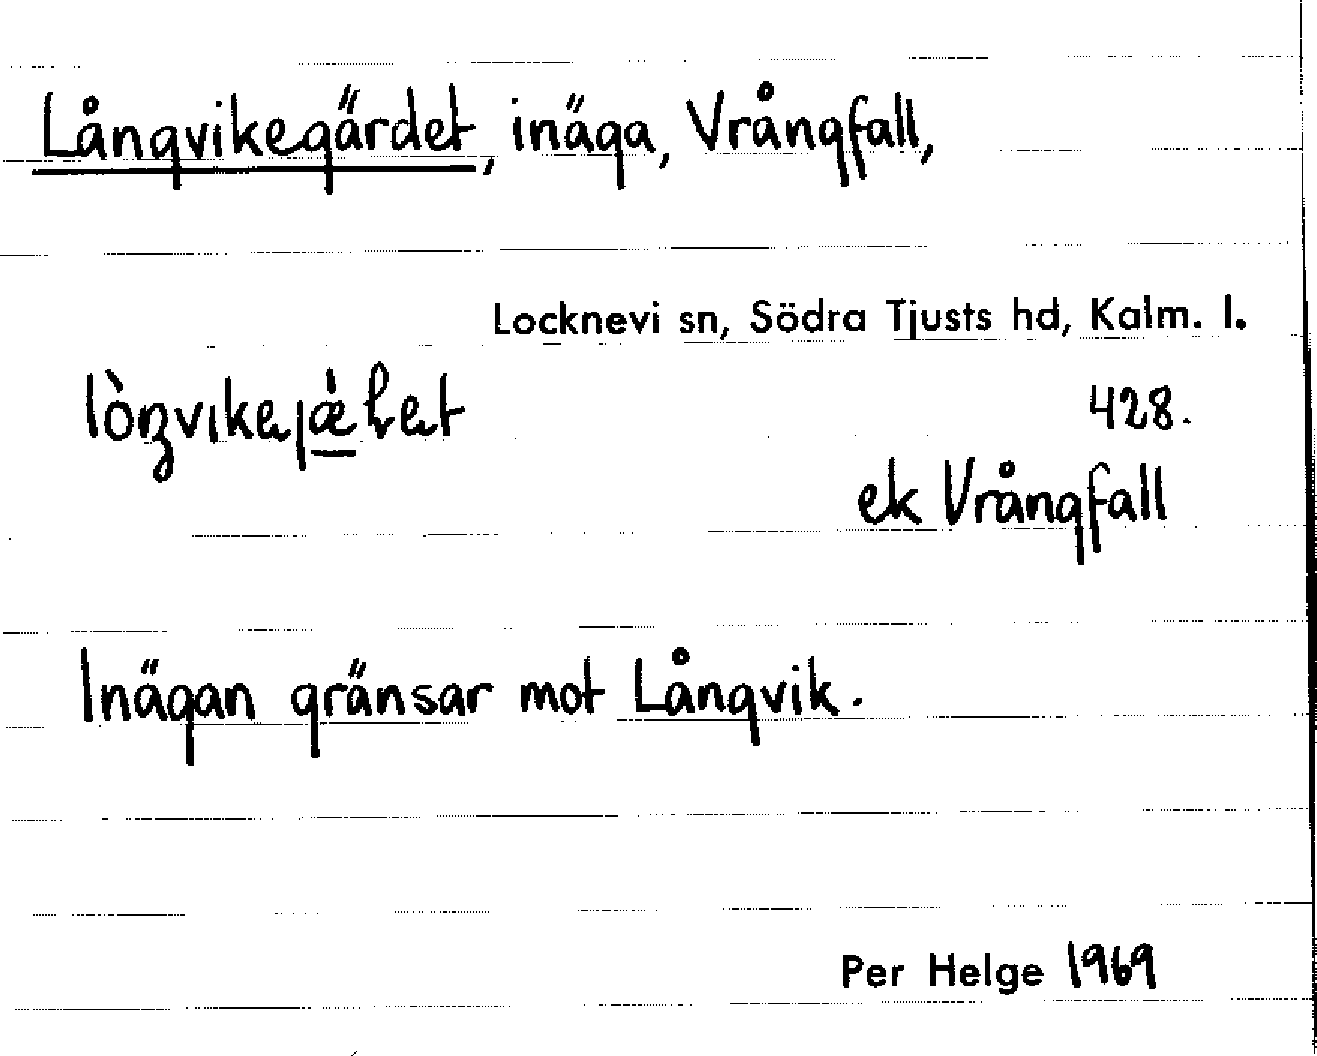 Långvikegärdet, inäga, Vrångfall,
Locknevi sn, Södra Tjusts hd, Kalm. l.
428.
ek Vrångfall
Inägan gränsar mot Långvik.
Per Helge 1969